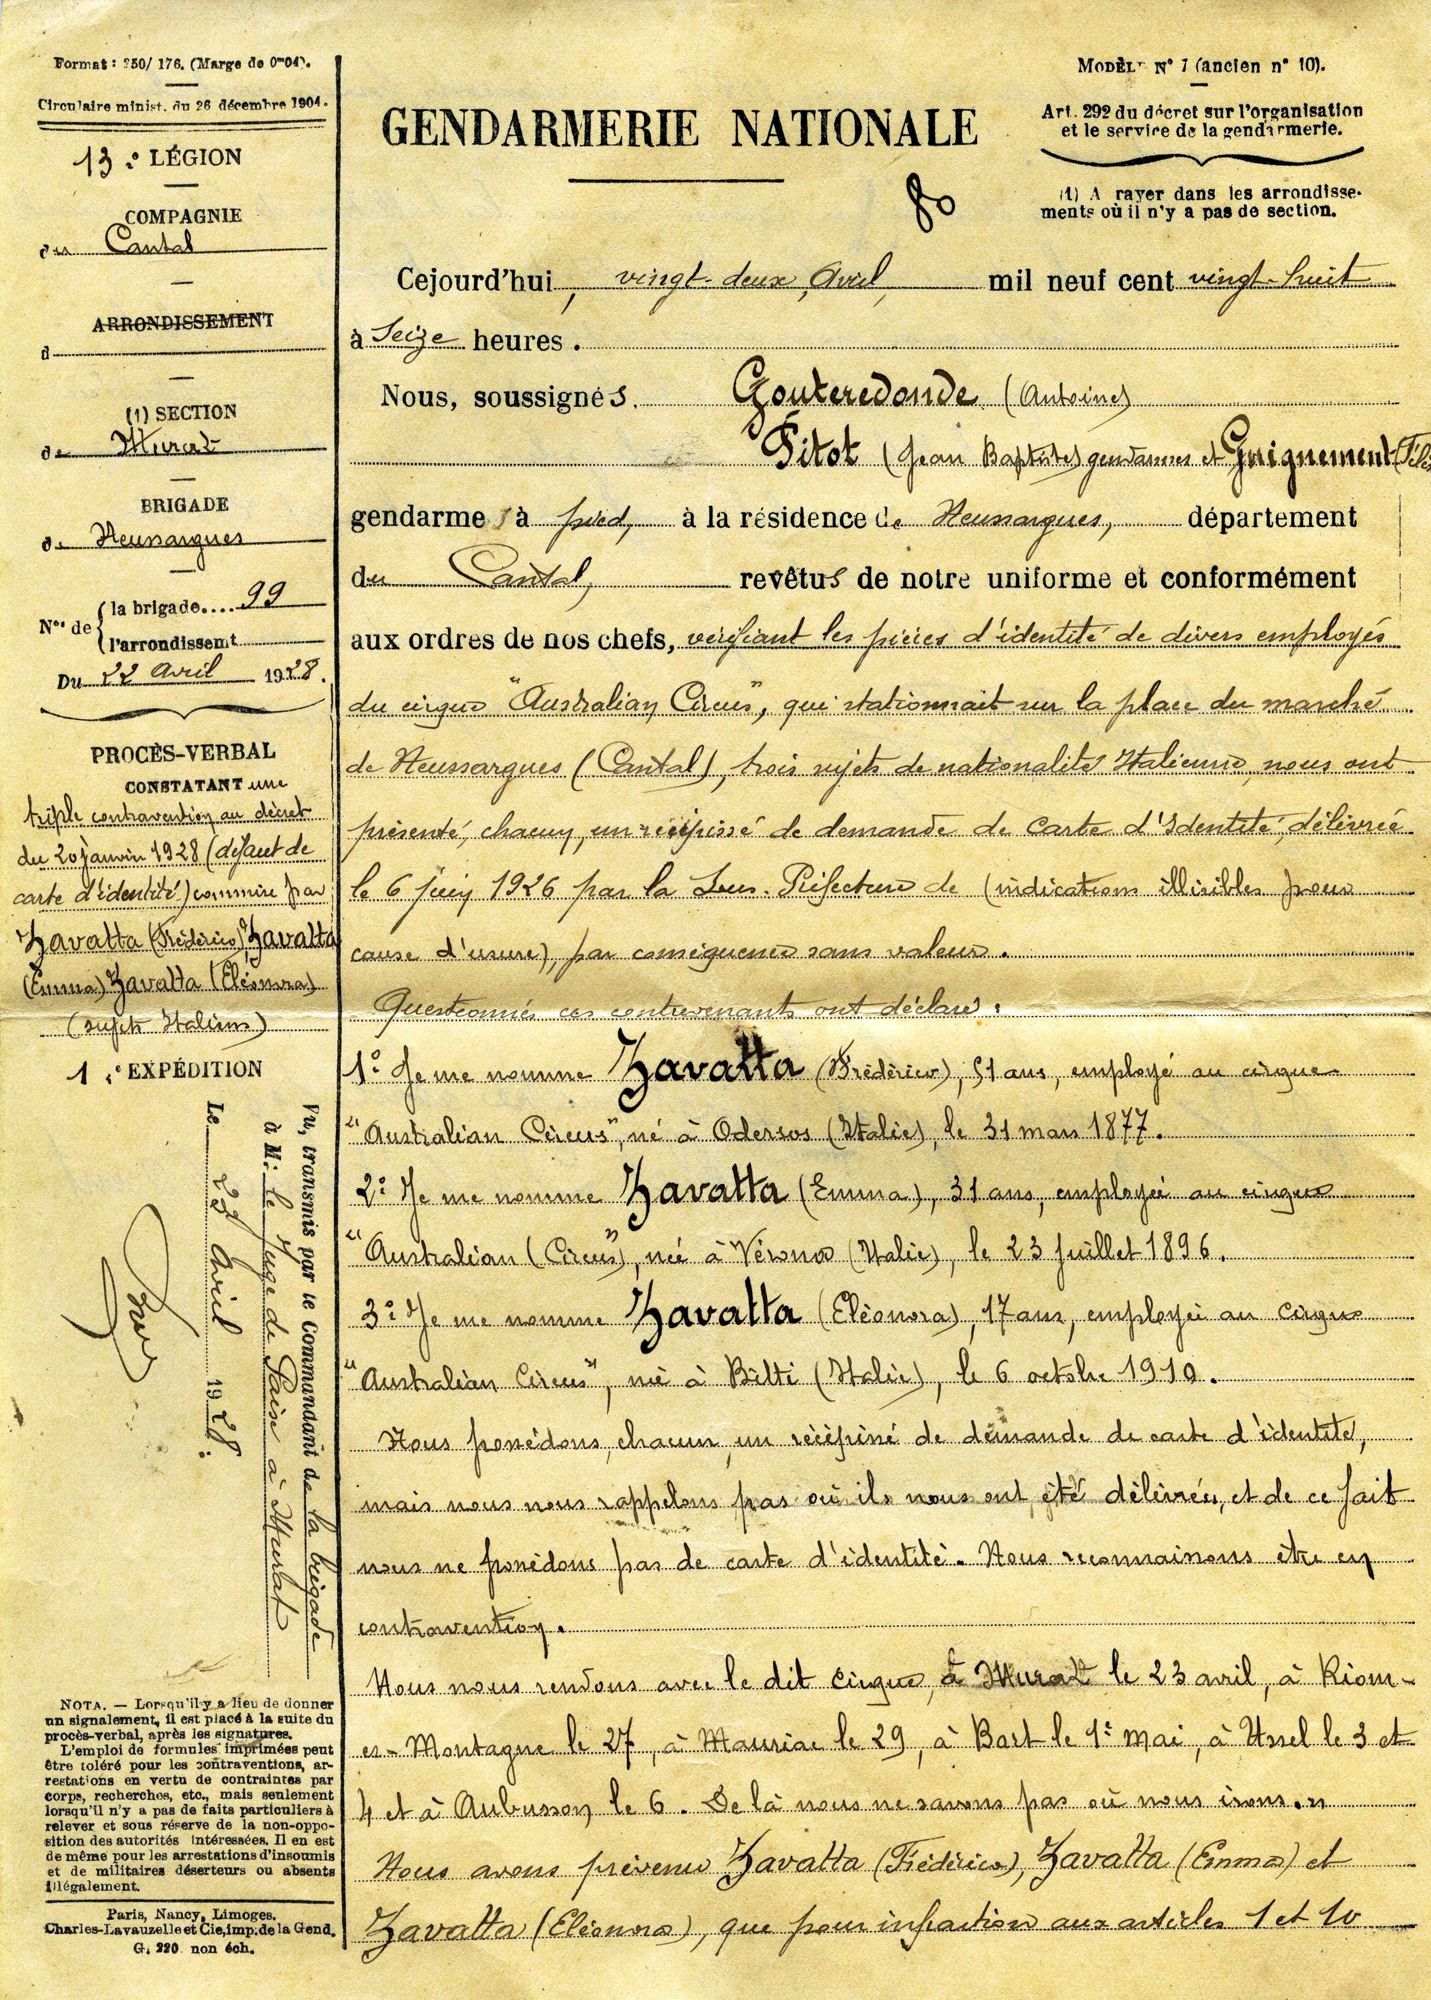 Format : 350/176. (Marge de 0m04).
Circulaire minist. du 26 décembre 1904.
13e LÉGION
COMPAGNIE
du Cantal
ARRONDISSEMENT
d
(1) SECTION
de Murat
BRIGADE
de Neussargues
Nos de { la brigade.... 99
l'arrondissemt
Du 22 Avril 1928.
PROCÈS-VERBAL
CONSTATANT une
triple contravention au décret
du 20 janvier 1928 (défaut de
carte d'identité) commise par
Zavatta (Frédérico), Zavatta
(Emma) Zavatta (Eléonora)
(sujets Italiens)
1e EXPÉDITION
Vu, transmis par le Commandant de la brigade
à M. le Juge de Paix à Murat
Le 23 Avril 1928.
NOTA. — Lorsqu'il y a lieu de donner
un signalement, il est placé à la suite du
procès-verbal, après les signatures.
L'emploi de formules imprimées peut
être toléré pour les contraventions, ar-
restations en vertu de contraintes par
corps, recherches, etc., mais seulement
lorsqu'il n'y a pas de faits particuliers à
relever et sous réserve de la non-oppo-
sition des autorités intéressées. Il en est
de même pour les arrestations d'insoumis
et de militaires déserteurs ou absents
illégalement.
Paris, Nancy, Limoges.
Charles-Lavauzelle et Cie, imp. de la Gend.
G. 220 non éch.
GENDARMERIE NATIONALE
80
MODÈLE N° 7 (ancien n° 10).
Art. 292 du décret sur l'organisation
et le service de la gendarmerie.
(1) A rayer dans les arrondisse-
ments où il n'y a pas de section.
Cejourd'hui, vingt-deux Avril, mil neuf cent vingt-huit
à Seize heures.
Nous, soussignés. Gouteredonde (Antoine)
Pitot (Jean Baptiste) gendarmes et Guignement
gendarmes à pied, à la résidence de Neussargues, département
du Cantal, revêtus de notre uniforme et conformément
aux ordres de nos chefs, vérifiant les pièces d'identité de divers employés
du cirque "Australian Circus", qui stationnait sur la place du marché
de Neussargues (Cantal), trois sujets de nationalité Italienne, nous ont
présenté, chacun, un récépissé de demande de Carte d'Identité, délivrée
le 6 juin 1926 par la Sous-Préfecture de (indications illisibles pour
cause d'usure), par conséquence sans valeur.
Questionnés ces contrevenants ont déclaré :
1° Je me nomme Zavatta (Frédérico), 51 ans, employé au cirque
"Australian Circus", né à Odersos (Italie), le 31 mars 1877.
2° Je me nomme Zavatta (Emma), 31 ans, employée au cirque
"Australian (Circus"), née à Vérona (Italie), le 23 Juillet 1896.
3° Je me nomme Zavatta (Eléonora), 17 ans, employée au Cirque
"Australian Circus", née à Bilti (Italie), le 6 octobre 1910.
Nous possédons, chacun, un récépissé de demande de carte d'identité,
mais nous nous rappelons pas où ils nous ont été délivrés, et de ce fait
nous ne possédons pas de carte d'identité. Nous reconnaissons être en
contravention.
Nous nous rendons avec le dit Cirque, à Murat le 23 avril, à Riom-
es-Montagne le 27, à Mauriac le 29, à Bort le 1er mai, à Ussel le 3 et
4 et à Aubusson le 6. De là nous ne savons pas où nous irons."
Nous avons prévenu Zavatta (Frédérico), Zavatta (Emma) et
Zavatta (Eléonora), que pour infraction aux articles 1 et 10